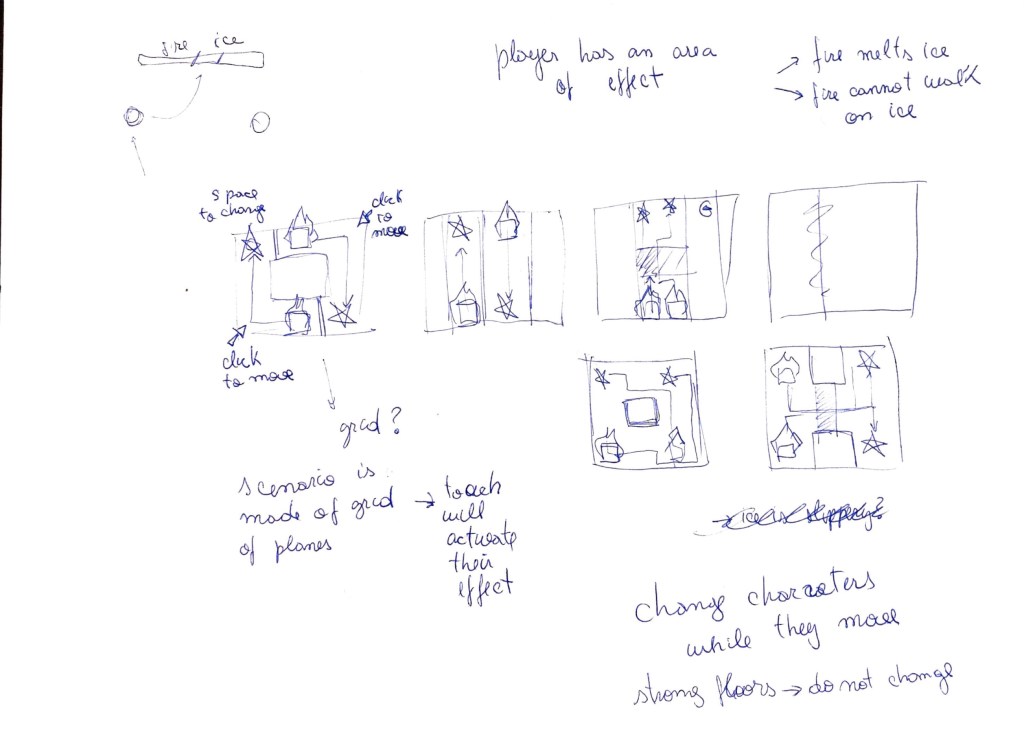 fire ice
player has an area
of effect
→ fire melts ice
→ fire cannot walk
on ice
space
to change
click
to
move
click
to move
grid?
scenario is
made of grid
of planes
→ touch
will
activate
their
effect
change characters
while they move
strong floors → do not change